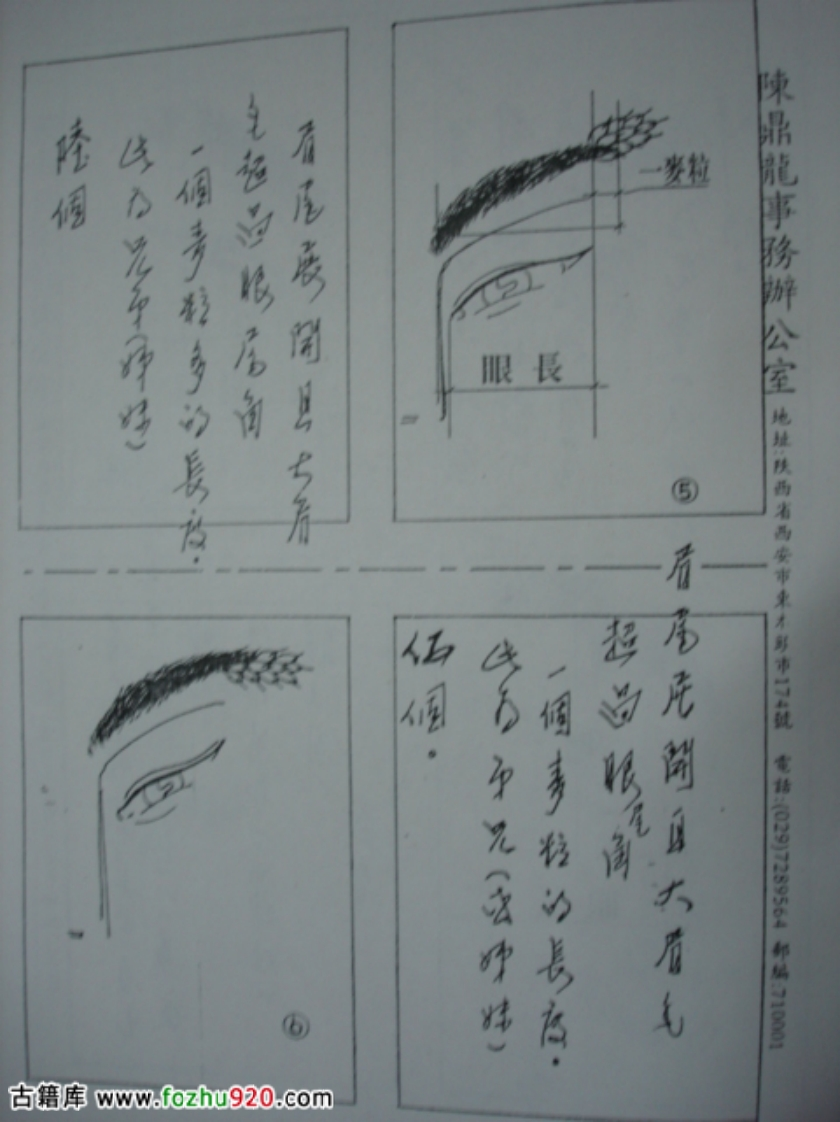 陳鼎龍事務辦公室
電話:(029)7289564 郵編:710001
一麥粒
眼長
⑤
眉尾展開且大眉
毛超過眼尾角
一個麥粒多的長度。
此為兄弟(姊妹)
陸個
眉尾展開且大眉毛
超過眼尾角
一個麥粒的長度。
此為弟兄(或姊妹)
伍個。
⑥
古籍库 www.fozhu920.com